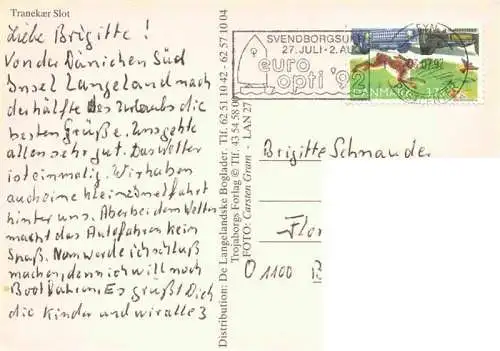 Tranekær Slot
Liebe Brigitte!
Von der Dänichen Süd
Insel Langeland nach
der hälfte des Urlaubs die
besten Grüße. Uns geht e
allen sehr gut. Das Wetter
ist einmalig. Wir haben
auch eine kleine Inselfahrt
hinter uns. Aber bei dem Wetter
macht das Autofahren kein
Spaß. Nun werde ich schluß
machen, denn ich will noch
Boot fahren. Es grüßt Dich
die Kinder und wir alle 3
Distribution: De Langelandske Boglader. Tlf. 62 51 10 42 - 62 57 10 04
Trojaborgs Forlag © Tlf. 43 54 58 00
FOTO: Carsten Gram - LAN 27
SVENDBORGSU
27. JULI - 2. AU
euro
opti '92
DANMARK
Brigitte Schnauder
Flo
O 1100 B